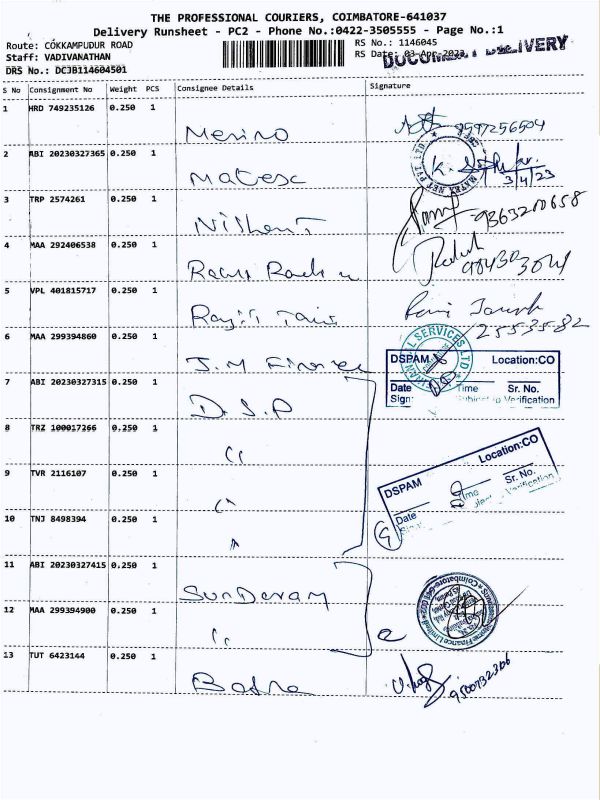 THE PROFESSIONAL COURIERS, COIMBATORE-641037
Delivery Runsheet - PC2 - Phone No.:0422-3505555 - Page No.:1
Route: COKKAMPUDUR ROAD RS No.: 1146045
Staff: VADIVANATHAN RS Date: 03-Apr-2023
DOCUMENT DELIVERY
DRS No.: DCJB114604501
S No Consignment No Weight PCS Consignee Details Signature
1 HRD 749235126 0.250 1
Merino 9597256504
2 ABI 20230327365 0.250 1
Matesc K. 3/4/23
3 TRP 2574261 0.250 1
Nishant 9363200658
4 MAA 292406538 0.250 1
9843033041
5 VPL 401815717 0.250 1
2553582
6 MAA 299394860 0.250 1
J.M Finance
DSPAM Location:CO
Date Time Sr. No.
Sign: Subject to Verification
7 ABI 20230327315 0.250 1
D.S.P
8 TRZ 100017266 0.250 1
"
DSPAM Location:CO
Date Time Sr. No.
9 TVR 2116107 0.250 1
"
10 TNJ 8498394 0.250 1
"
11 ABI 20230327415 0.250 1
Sunderam
12 MAA 299394900 0.250 1
"
13 TUT 6423144 0.250 1
9500732306